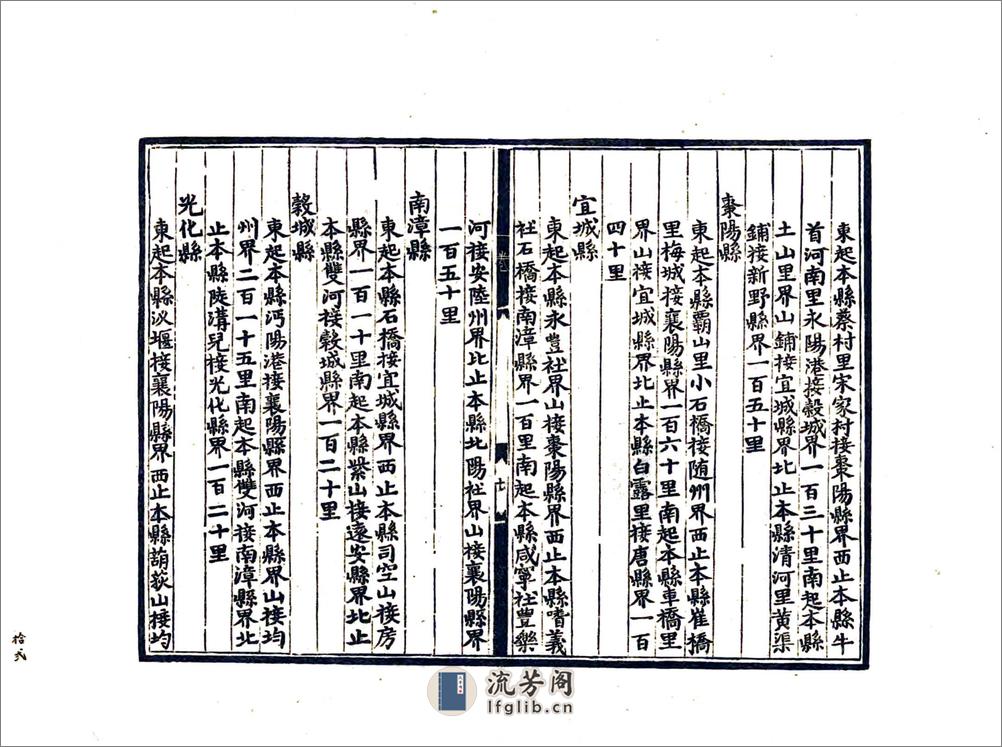 東起本縣蔡村里宋家村接棗陽縣界西止本縣牛
首河南里永陽港接穀城界一百三十里南起本縣
土山里界山鋪接宜城縣界北止本縣清河里黃渠
鋪接新野縣界一百五十里
棗陽縣
東起本縣霸山里小石橋接随州界西止本縣崔橋
里梅城接襄陽縣界一百六十里南起本縣車橋里
界山接宜城縣界北止本縣白露里接唐縣界一百
四十里
宜城縣
東起本縣永豐社界山接棗陽縣界西止本縣嗜義
社石橋接南漳縣界一百里南起本縣咸寧社豐樂
卷
七
河接安陸州界北止本縣北陽社界山接襄陽縣界
一百五十里
南漳縣
東起本縣石橋接宜城縣界西止本縣司空山接房
縣界一百一十里南起本縣紫山接遠安縣界北止
本縣雙河接穀城縣界一百二十里
穀城縣
東起本縣沔陽港接襄陽縣界西止本縣界山接均
州界二百一十五里南起本縣雙河接南漳縣界北
止本縣陡溝兒接光化縣界一百二十里
光化縣
東起本縣汊堰接襄陽縣界西止本縣葫荻山接均
拾弐
流芳阁
lfglib.cn